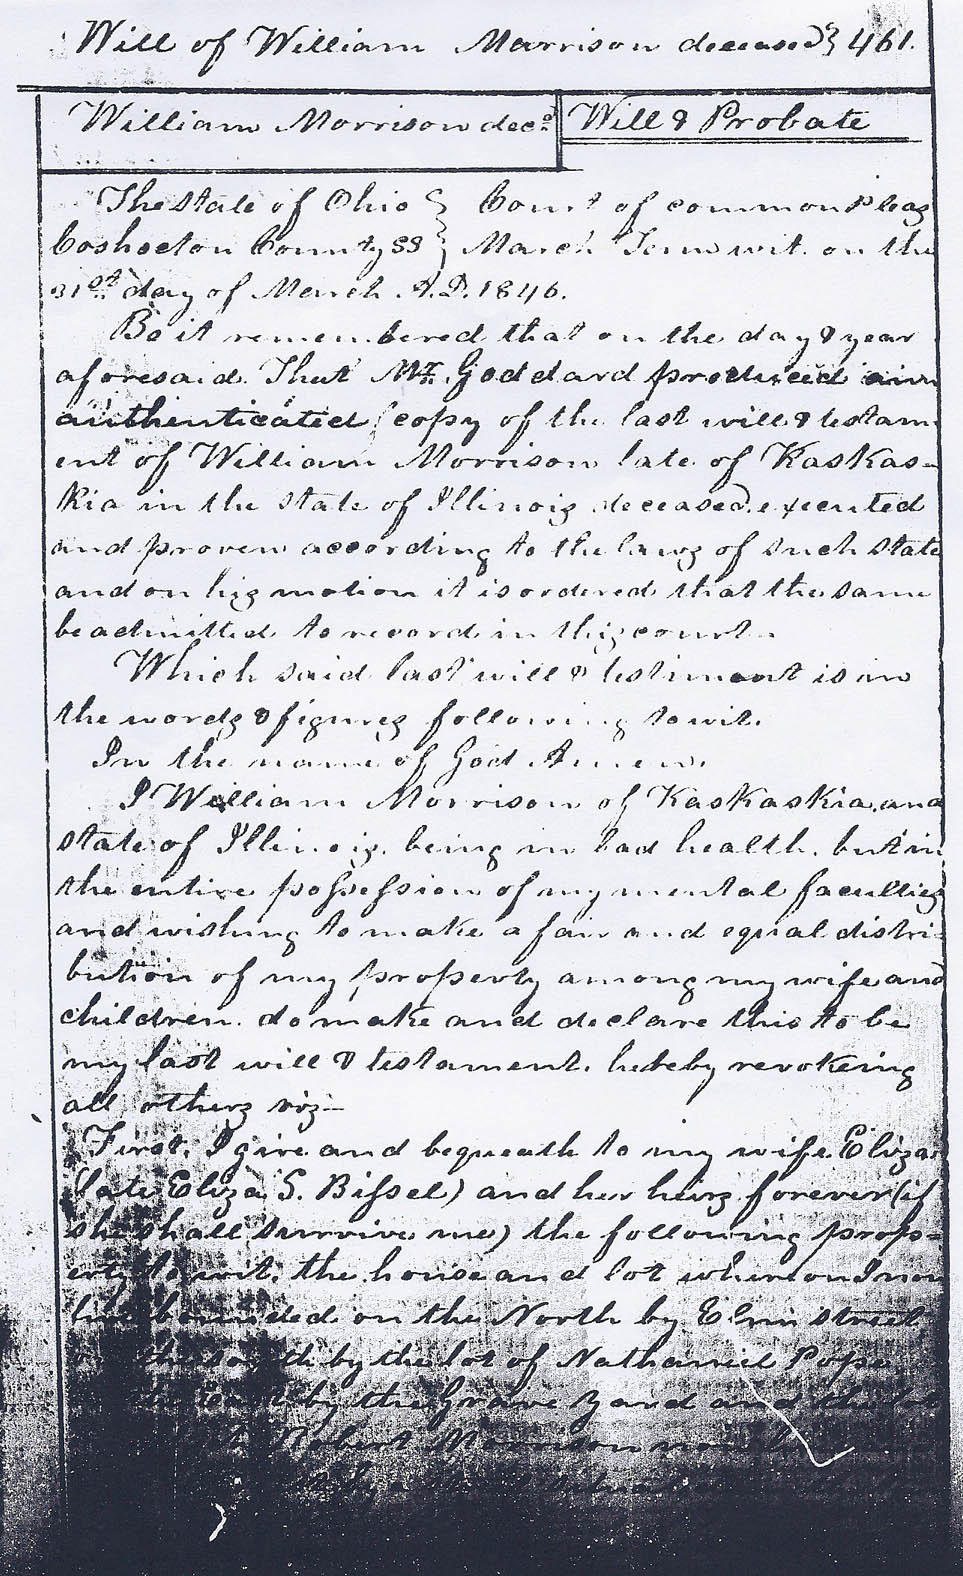 Will of William Morrison deceased} 461.
William Morrison decd
Will & Probate
The State of Ohio } Court of common Pleas
Coshocton County SS } March Term wit. on the
31st day of March A.D. 1846.
Be it remembered that on the day & year
aforesaid. That Mr. Goddard produced an
authenticated copy of the last will & testam-
ent of William Morrison late of Kaskas-
kia in the state of Illinois deceased. executed
and proven according to the laws of such state
and on his motion it is ordered that the same
be admitted to record in this court.
Which said last will & testiment is in
the words & figures following to wit.
In the name of God Amen.
I William Morrison of Kaskaskia, and
state of Illinois. being in bad health. but in
the entire possession of my mental faculties
and wishing to make a fair and equal distri-
bution of my property among my wife and
children. do make and declare this to be
my last will & testament. hebeby revokeing
all others viz—
First. I give and bequeath to my wife Eliza
(late Eliza S. Bissel) and her heirs forever (if
she shall survive me) the following prop-
erty to wit. the house and lot whereon I now
live bounded on the North by Elm street
on the south by the lot of Nathaniel Pope
by the Grave Yard and the lot
Robert Morrison now